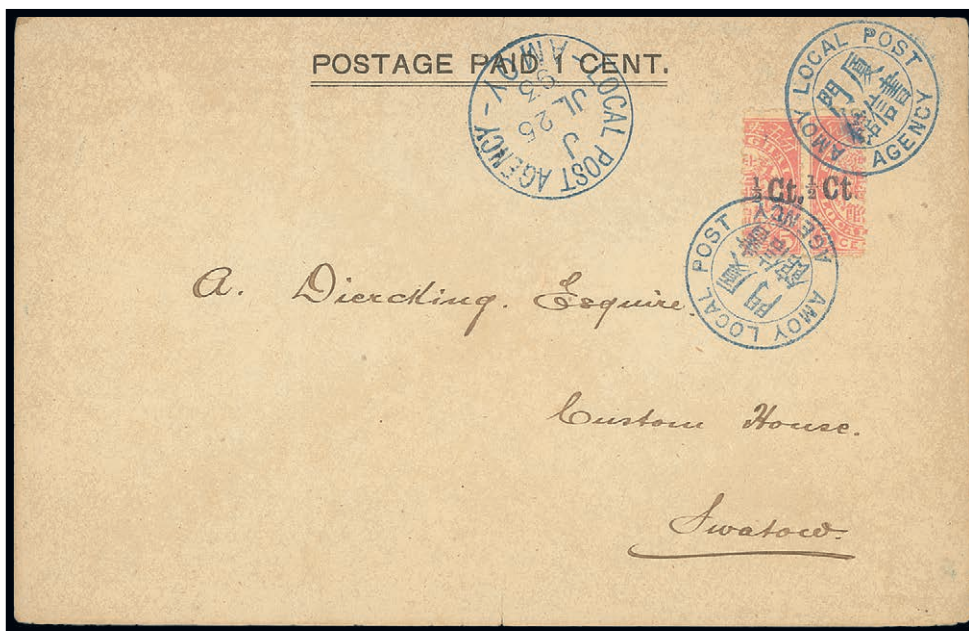 POSTAGE PAID 1 CENT.
LOCAL POST AGENCY
- AMOY -
J
JL 25
93
AMOY LOCAL POST AGENCY
廈門
書信館
½Ct. ½Ct
AMOY LOCAL POST AGENCY
廈門
書信館
A. Diercking. Esquire.
Custom House.
Swatow.